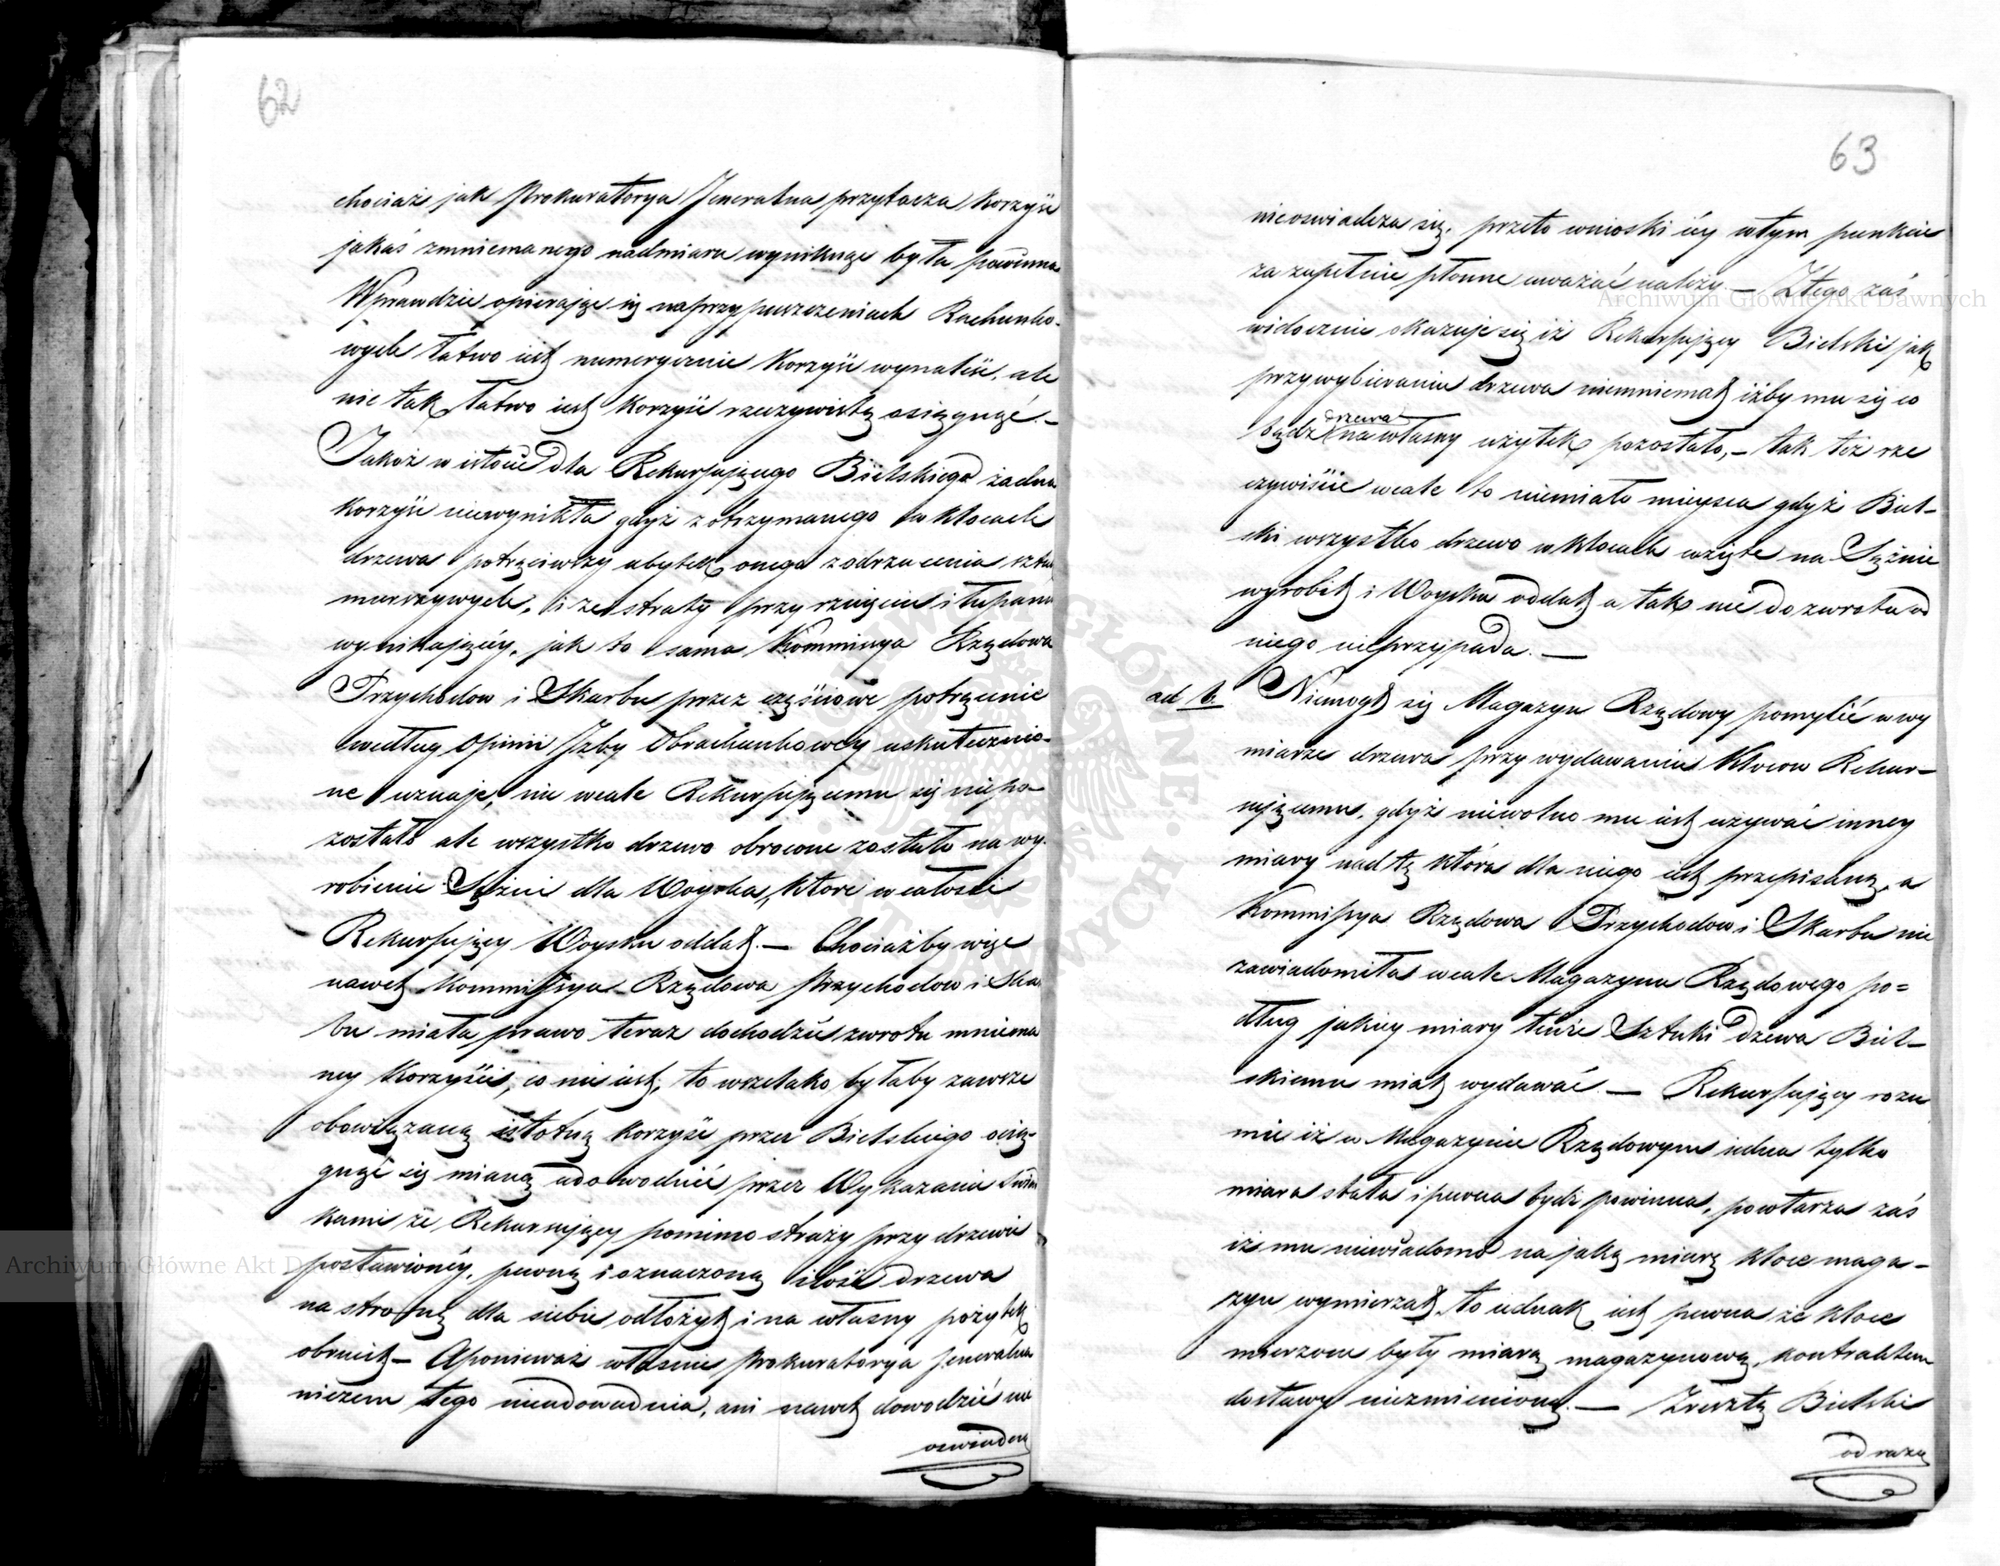 62
chociaż jak Prokuratorya Jeneralna przytacza korzyść
jakaś zmniemanego nadmiaru wyniknąć była powinna
Wprawdzie opierając się na przypuszczeniach Rachunko-
wych łatwo iest numerycznie korzyść wynaleść, ale
nie tak łatwo iest korzyść rzeczywistą osięgnąć. –
Jakoż w istocie dla Rekursującego Bielskiego żadna
korzyść niewynikła gdyż z otrzymanego w klocach
drzewa potrąciwszy ubytek onego z odrzucenia sztuk
murszywych, i ze straty przy rznięciu i łupaniu
wynikającéy, jak to sama Kommissya Rządowa
Przychodow i Skarbu przez częściowe potrącenie
według Opinii Izby Obrachunkowey uskutecznio-
ne uznaje, nic wcale Rekursującemu się niepo-
zostało ale wszystko drzewo obrocone zostało na wy-
robienie Sążni dla Woyska, które w całości
Rekursujący Woysku oddał. — Chociażby więc
nawet Kommissya Rządowa Przychodow i Skar
bu miała prawo teraz dochodzić zwrotu mniema
ney korzyści, co nie iest, to wszelako byłaby zawsze
obowiązaną istotną korzyść przez Bielskiego osią-
gnąć się mianą udowodnić przez Wykazanie Świad
kami że Rekursujący pomimo straży przy drzewie
postawionéy, pewną i oznaczoną ilość drzewa
na stronę dla siebie odłożył i na własny pożytek
obrucił – A ponieważ właśnie Prokuratorya Jeneralna
niczem tego nieudowadnia, ani nawet dowodzić nie
oswiadcza
63
nieoswiadcza się, przeto wnioski iéy w tym punkcie
za zupełnie płonne uważać należy. — Z tego zaś
widocznie okazuje się iż Rekursujący Bielski jak
przy wybieraniu drzewa niemniemał iżby mu się co
drzewa
bądź na własny użytek pozostało, – tak też rze
czywiście wcale to niemiało mieysca gdyż Biel-
ski wszystko drzewo w klocach wzięte na Sążnie
wyrobił i Woysku oddał a tak nic do zwrotu od
niego nieprzypada. —
ad b. Niemógł się Magazyn Rządowy pomylić w wy
miarze drzewa przy wydawaniu kloców Rekur-
sującemu, gdyż niewolno mu iest używać inney
miary nad tę która dla niego iest przepisaną, a
Kommissya Rządowa Przychodow i Skarbu nie
zawiadomiła wcale Magazynu Rządowego po=
dług jakiey miary tenże Sztuki dzewa Biel-
skiemu miał wydawać. — Rekursujący rozu
mie iż w Magazynie Rządowym iedna tylko
miara stała i pewna bydź powinna, powtarza zaś
iż mu niewiadomo na jaką miarę kloce maga-
zyn wymierzał, to iednak iest pewna że kloce
mierzone były miarą magazynową, kontraktem
dostawy niezmienioną. — Zresztą Bielski
od razu
Archiwum Główne Akt Dawnych
Archiwum Główne Akt Daw